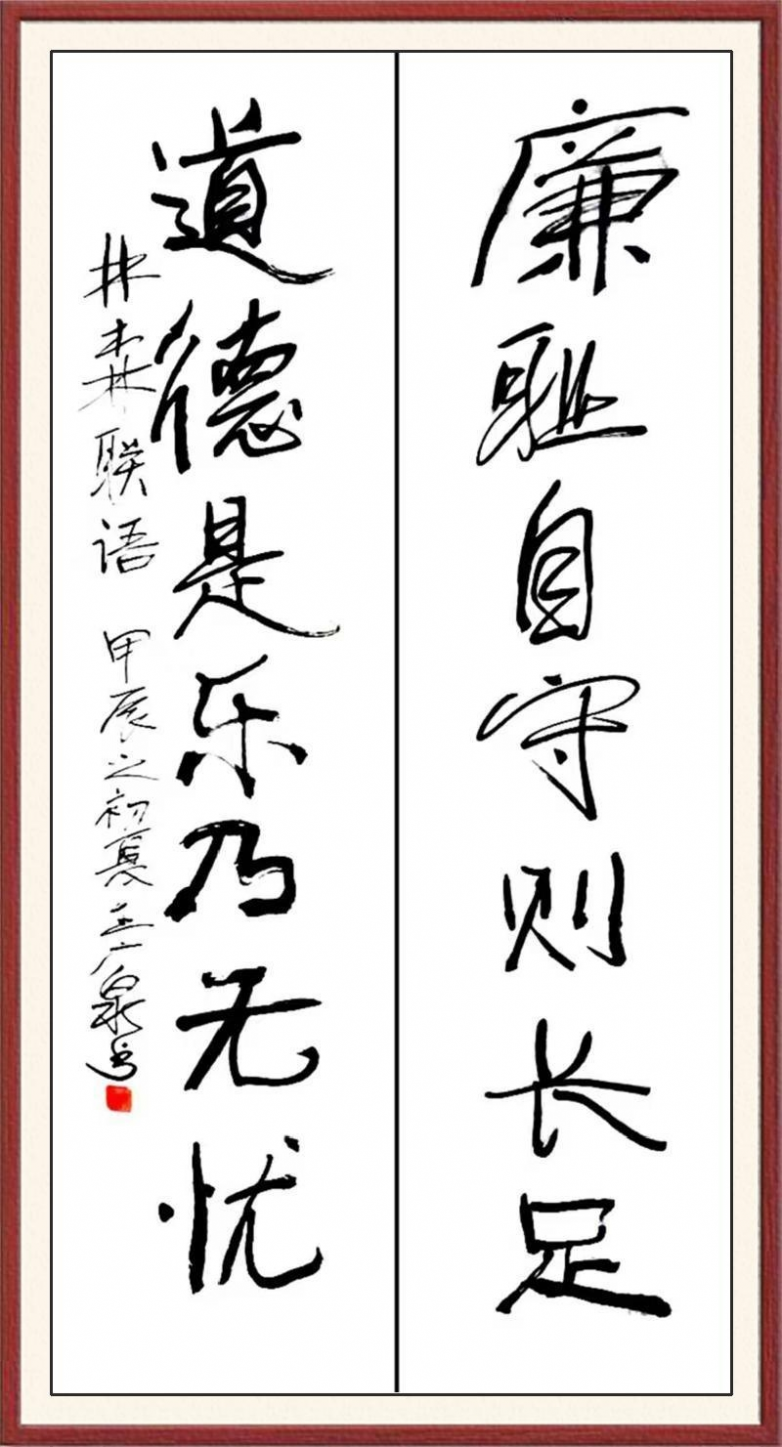 廉耻自守则长足
道德是乐乃无忧
林森联语 甲辰之初夏 王广泉书